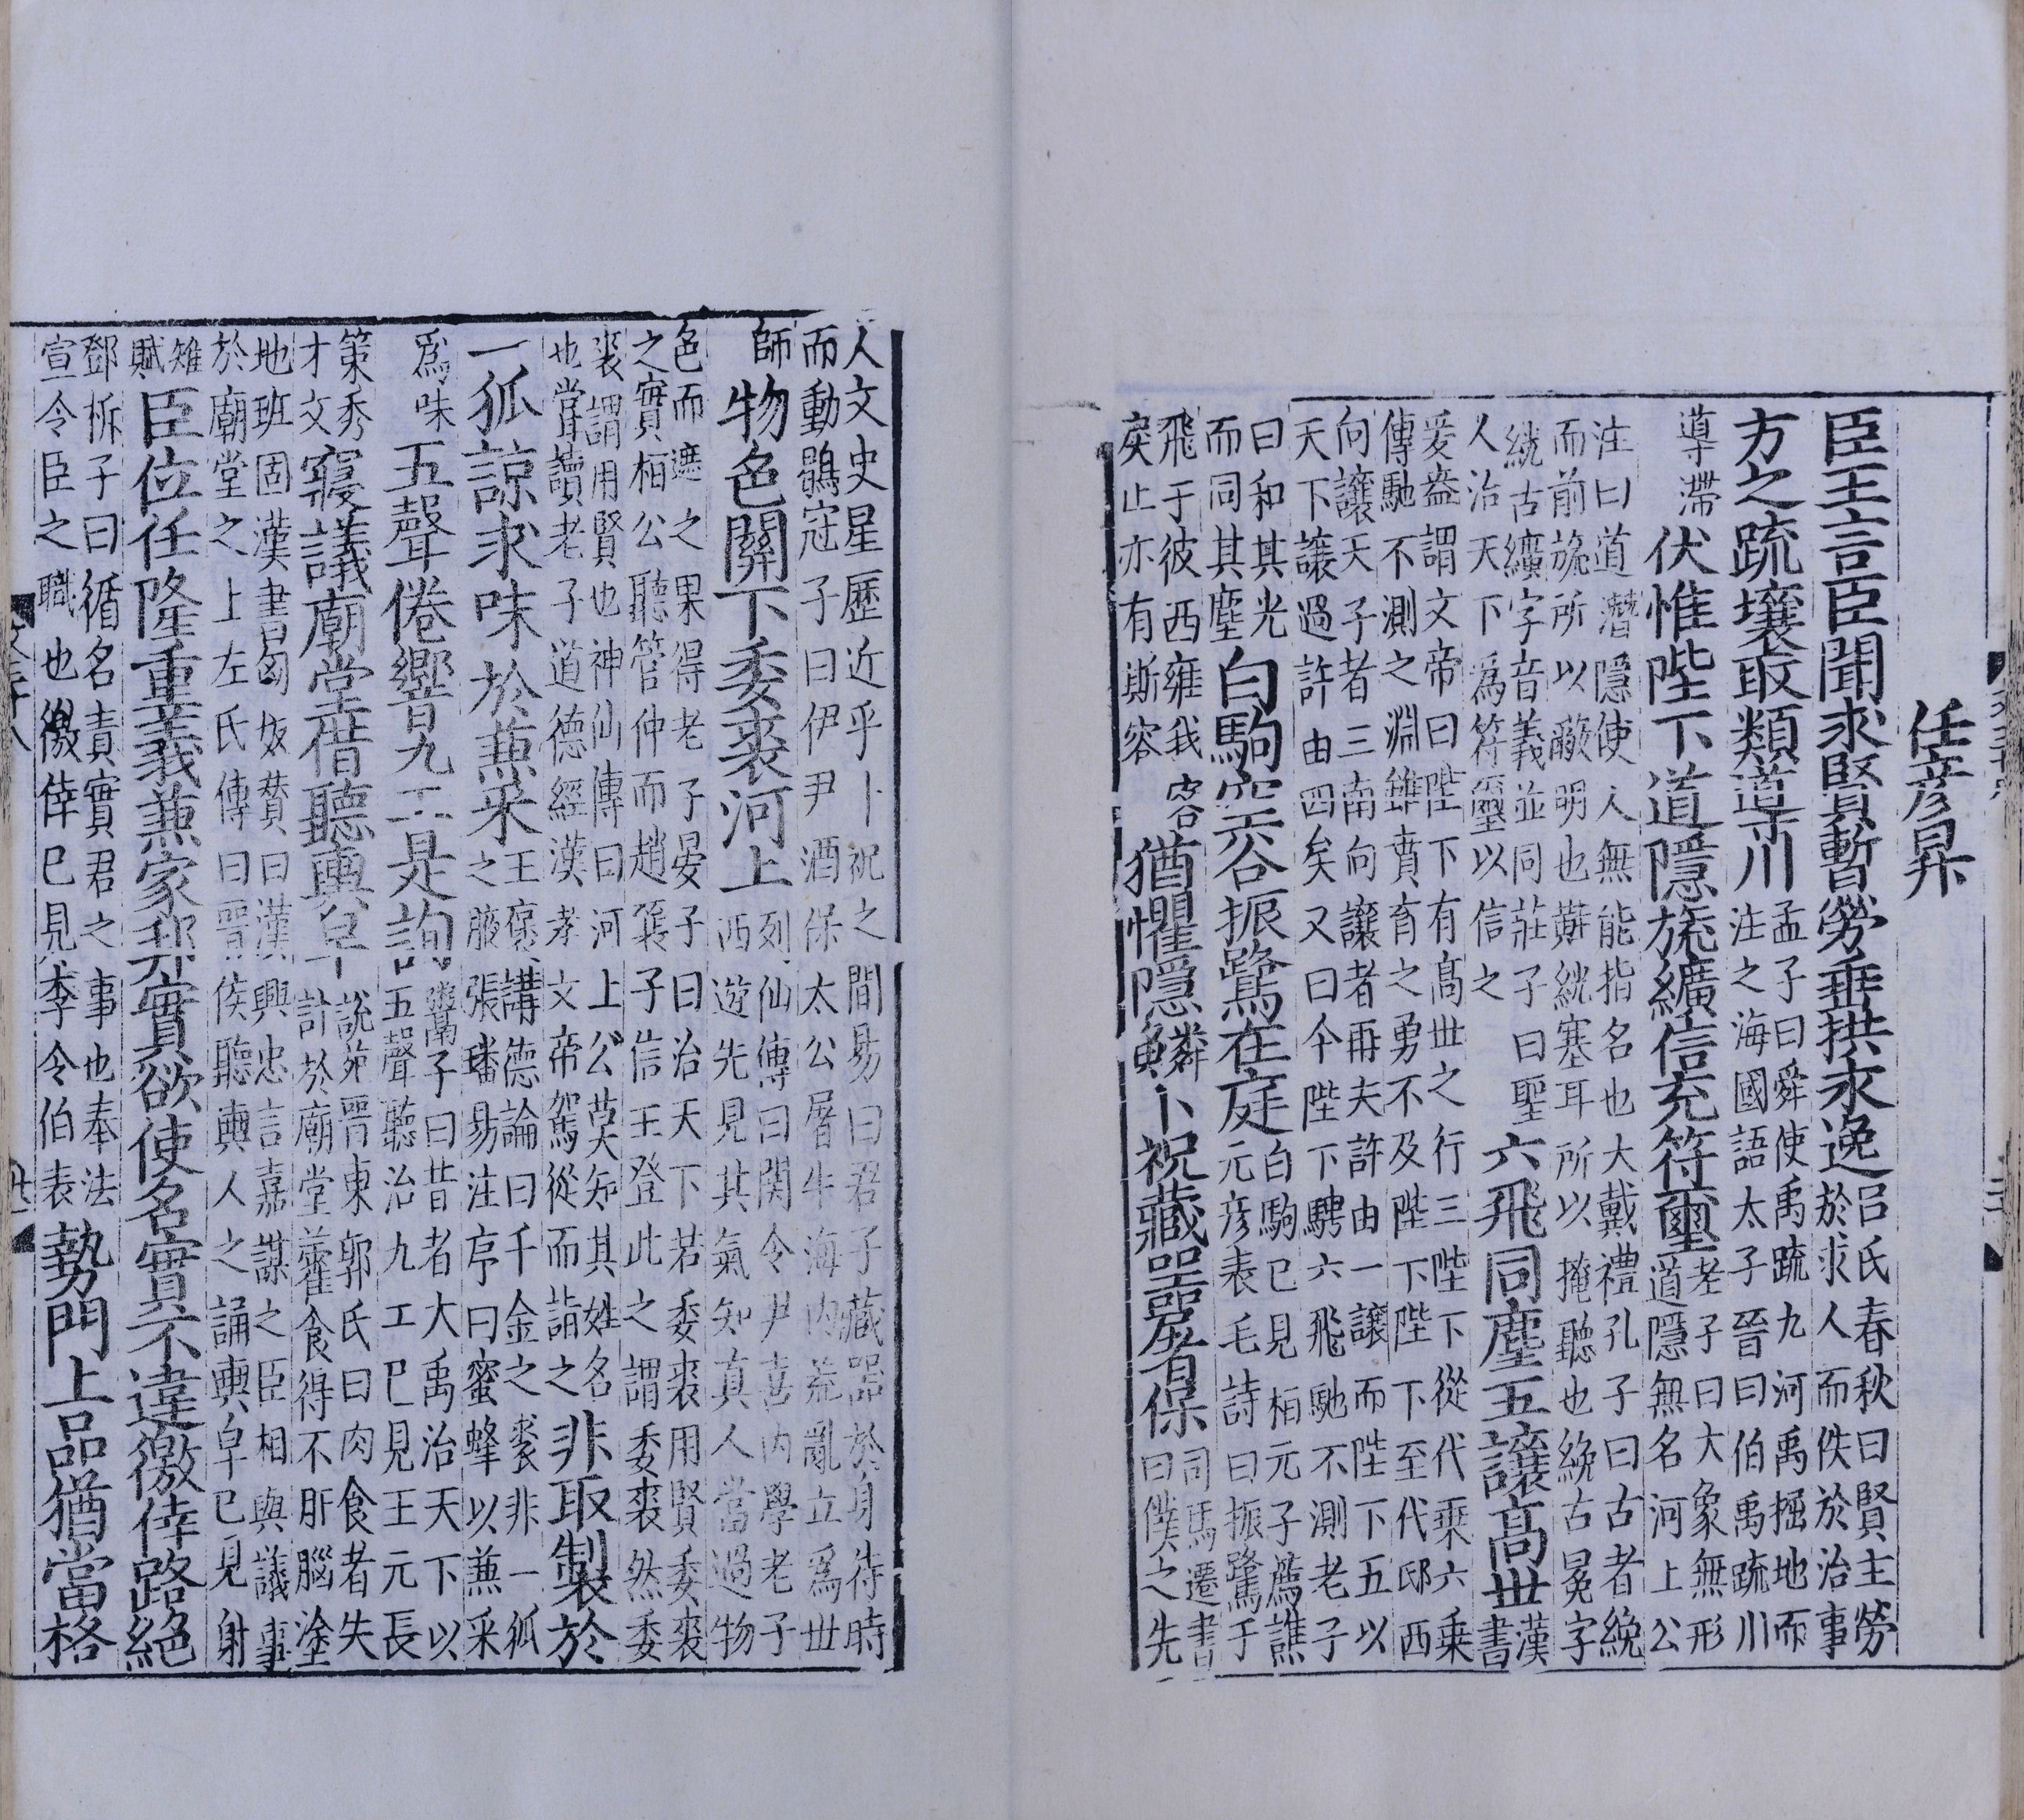 任彦昇
臣王言臣聞求賢暫勞垂拱永逸
呂氏春秋曰賢主勞
於求人而佚於治事
方之疏壤取類導川
孟子曰舜使禹疏九河禹掘地而
注之海國語太子晉曰伯禹疏川
導滯
伏惟陛下道隱旒纊信充符璽
老子曰大象無形
道隱無名河上公
注曰道潛隱使人無能指名也大戴禮孔子曰古者絻
而前旒所以蔽明也黈絖塞耳所以掩聽也絻古冕字
絖古纊字音義並同莊子曰聖
人治天下為符璽以信之
六飛同塵五讓髙世
漢
書
爰盎謂文帝曰陛下有髙世之行三陛下從代乗六乗
傳馳不測之淵雖賁育之勇不及陛下陛下至代邸西
向讓天子者三南向讓者再夫許由一讓而陛下五以
天下讓過許由四矣又曰今陛下騁六飛馳不測老子
曰和其光
而同其塵
白駒空谷振鷺在庭
白駒已見桓元子薦譙
元彦表毛詩曰振鷺于
飛于彼西雍我客
戾止亦有斯容
猶懼隱鱗卜祝藏器屠保
司馬遷書
曰僕之先
人文史星歷近乎卜祝之間易曰君子藏器於身待時
而動鶡冠子曰伊尹酒保太公屠牛海内荒亂立爲世
師
物色關下委裘河上
列仙傳曰関令尹喜内學老子
西遊先見其氣知真人當過物
色而遮之果得老子晏子曰治天下若委裘用賢委裘
之實桓公聽管仲而趙襄子信王登此之謂委裘然委
裘謂用賢也神仙傳曰河上公莫知其姓名
也嘗讀老子道德經漢孝文帝駕從而詣之
非取製於
一狐諒求味於兼采
王褒講德論曰千金之裘非一狐
之腋張璠易注序曰蜜蜂以兼采
爲味
五聲倦響九工是詢
鬻子曰昔者大禹治天下以
五聲聽治九工已見王元長
策秀
才文
寢議廟堂借聽輿皁
説苑晉東郭氏曰肉食者失
計於廟堂藿食得不肝腦塗
地班固漢書匈奴贊曰漢興忠言嘉謀之臣相與議事
於廟堂之上左氏傳曰晉侯聽輿人之誦輿皁已見射
雉
賦
臣位任隆重義兼家邦實欲使名實不違徼倖路絶
鄧析子曰循名責實君之事也奉法
宣令臣之職也徼倖已見李令伯表
勢門上品猶當格